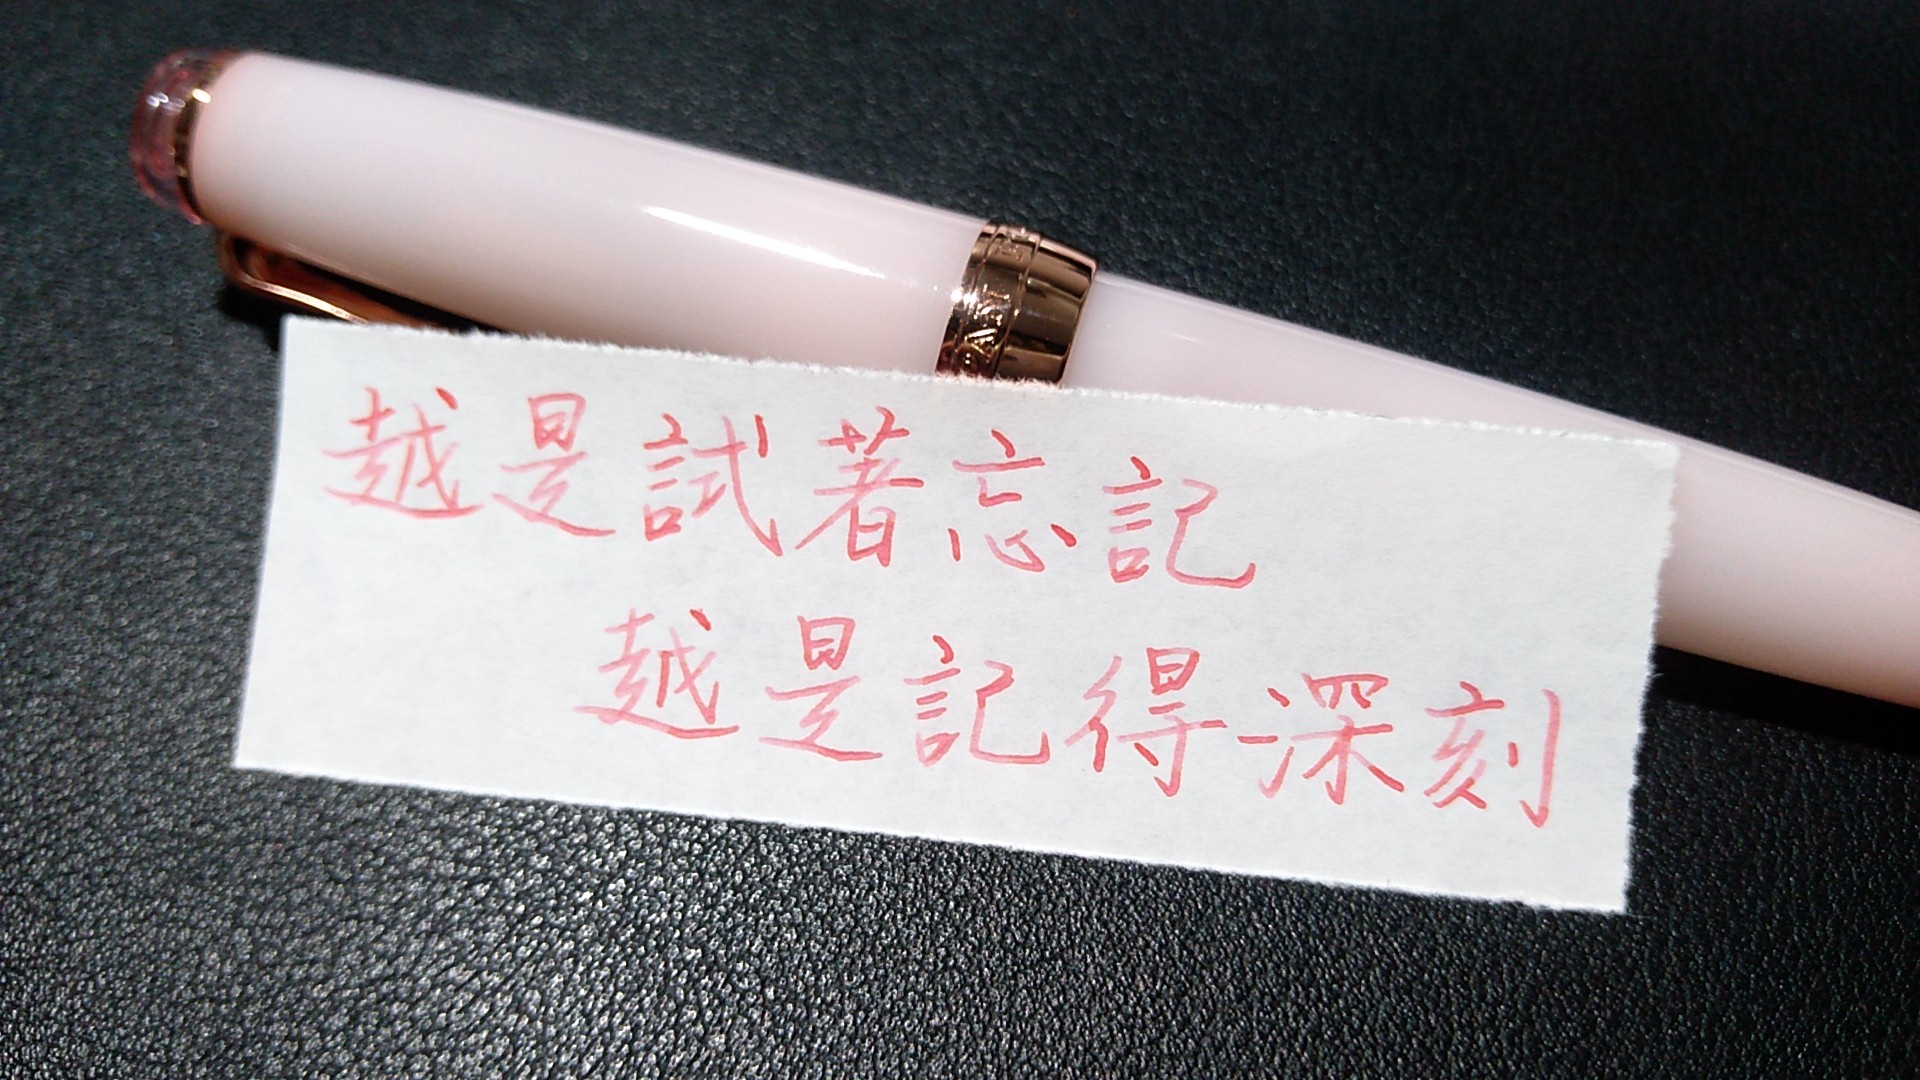 越是試著忘記
越是記得深刻